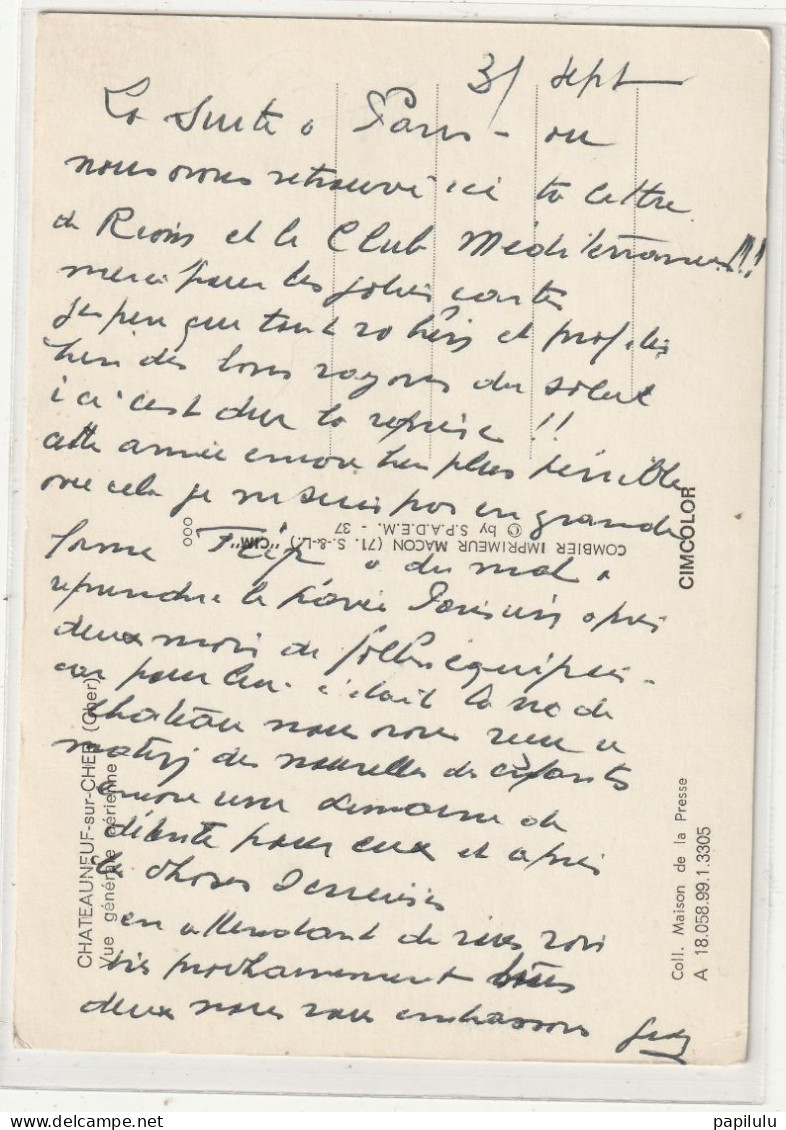 3/ Sept
La suite a Paris - ou
nous avons retrouvé ici ta lettre
de et le Club Méditerranée!!!
merci pour les jolies cartes
que tout va bien et profitez
bien des bons rayons du soleil
ici c'est dur la reprise !!
cette année encore bien plus pénible
avec cela je ne suis pas en grande
forme a du mal a
reprendre la Parisien après
deux mois de folles équipées -
car pour lui c'était la vie de
chateau nous avons reçu ce
matin des nouvelles des enfants
encore une semaine de
détente pour eux et après
les choses serieuses
en attendant de vous voir
très prochainement tous
deux nous vous embrassons
CHATEAUNEUF-sur-CHER (Cher)
Vue générale aérienne
COMBIER IMPRIMEUR MACON (71. S.-&-L.) "CIM"
© by S.P.A.D.E.M. - 37
CIMCOLOR
Coll. Maison de la Presse
A 18.058.99.1.3305
papilulu
delcampe.net